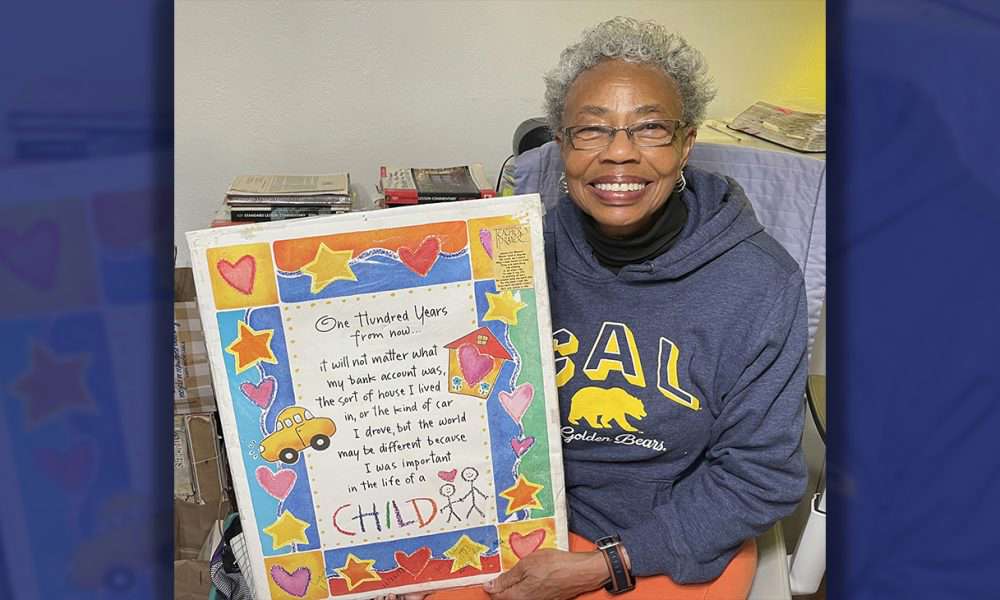 STANDARD LESSON COMMENTARY
TEACHER'S
PRAYER
One Hundred Years
from now...
it will not matter what
my bank account was,
the sort of house I lived
in, or the kind of car
I drove, but the world
may be different because
I was important
in the life of a
CHILD
CAL
Golden Bears